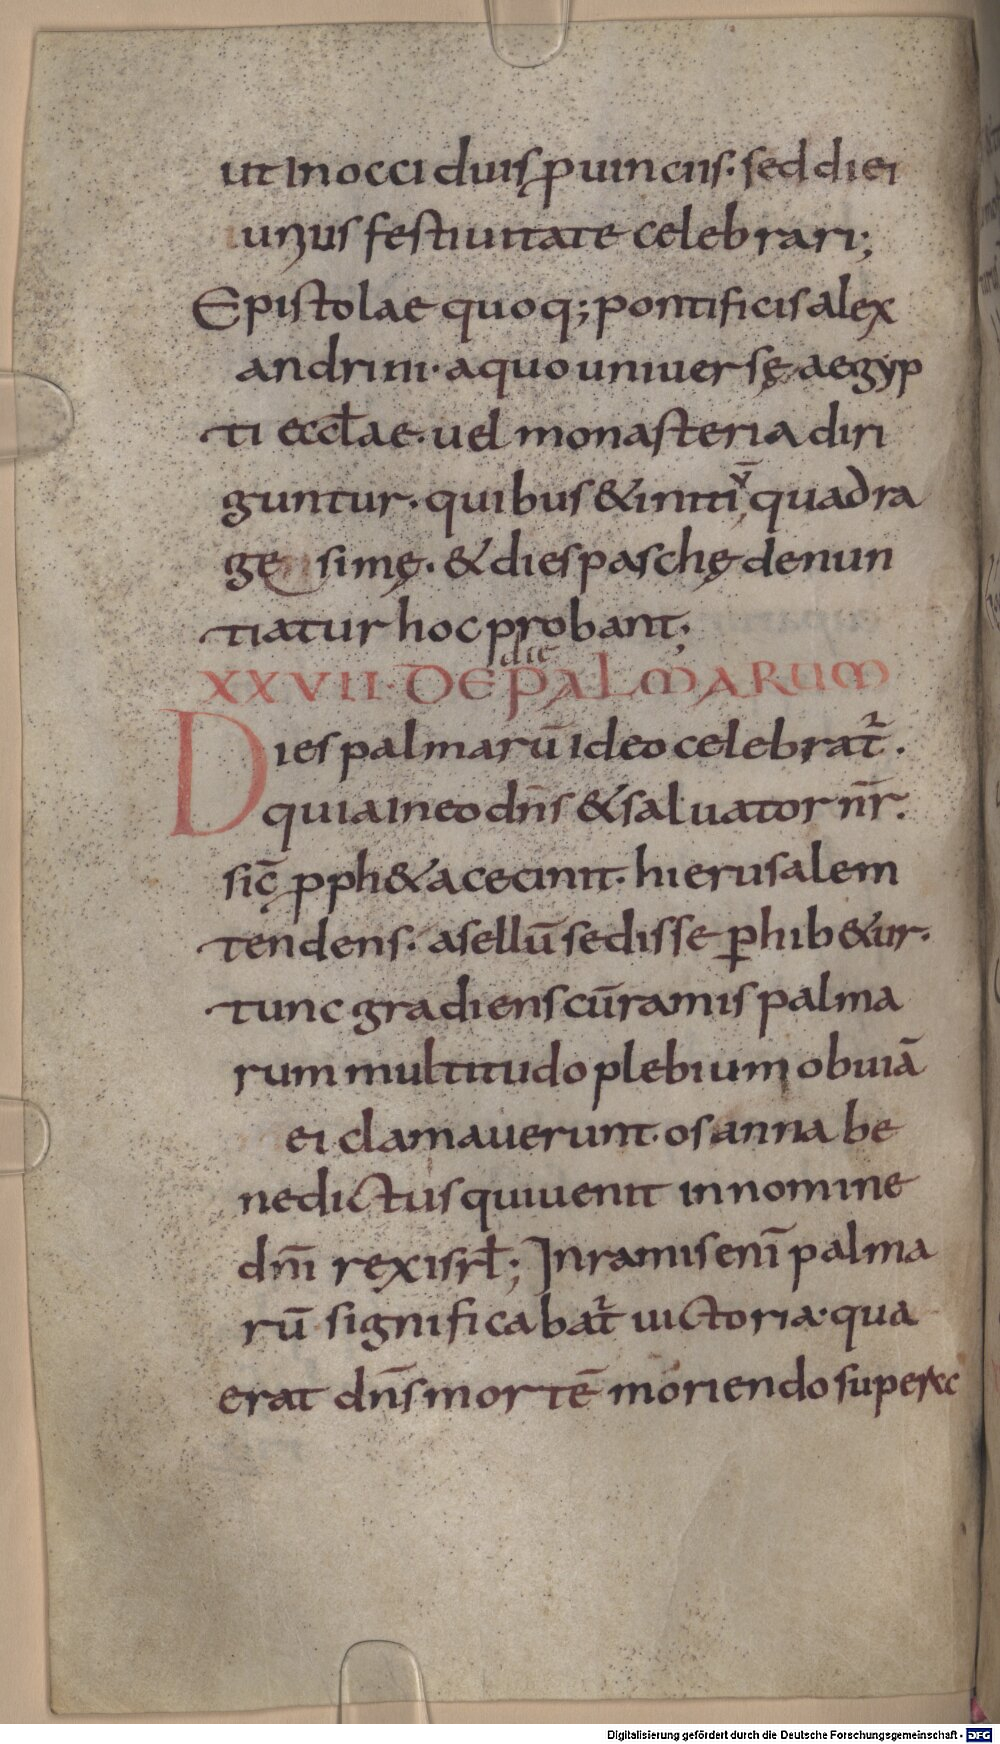 ut in occiduis ꝓuinciis· sed diei
unius festiuitate celebrari;
Epistolae quoq; pontificis alex
andrini· a quo uniuersę aegyp
ti eccłae· uel monasteria diri
guntur· quibus & initiū quadra
ge simę· & dies paschę denun
tiatur hoc probant;
die
XXVII· DE PALMARUM
Dies palmarū ideo celebrat᷑.
quia in eo dn̄s & saluator nr̄.
sic̄ ꝓph&a cecinit· hierusalem
tendens· asellū sedisse ꝑhib&ur·
tunc gradiens cū ramis palma
rum multitudo plebium obuiā
ei clamauerunt· osanna be
nedictus qui uenit in nomine
dn̄i rex isrł; In ramis eni̅ palma
rū significabat᷑ uictoria· qua
erat dn̄s mortē moriendo super&c
Digitalisierung gefördert durch die Deutsche Forschungsgemeinschaft - DFG